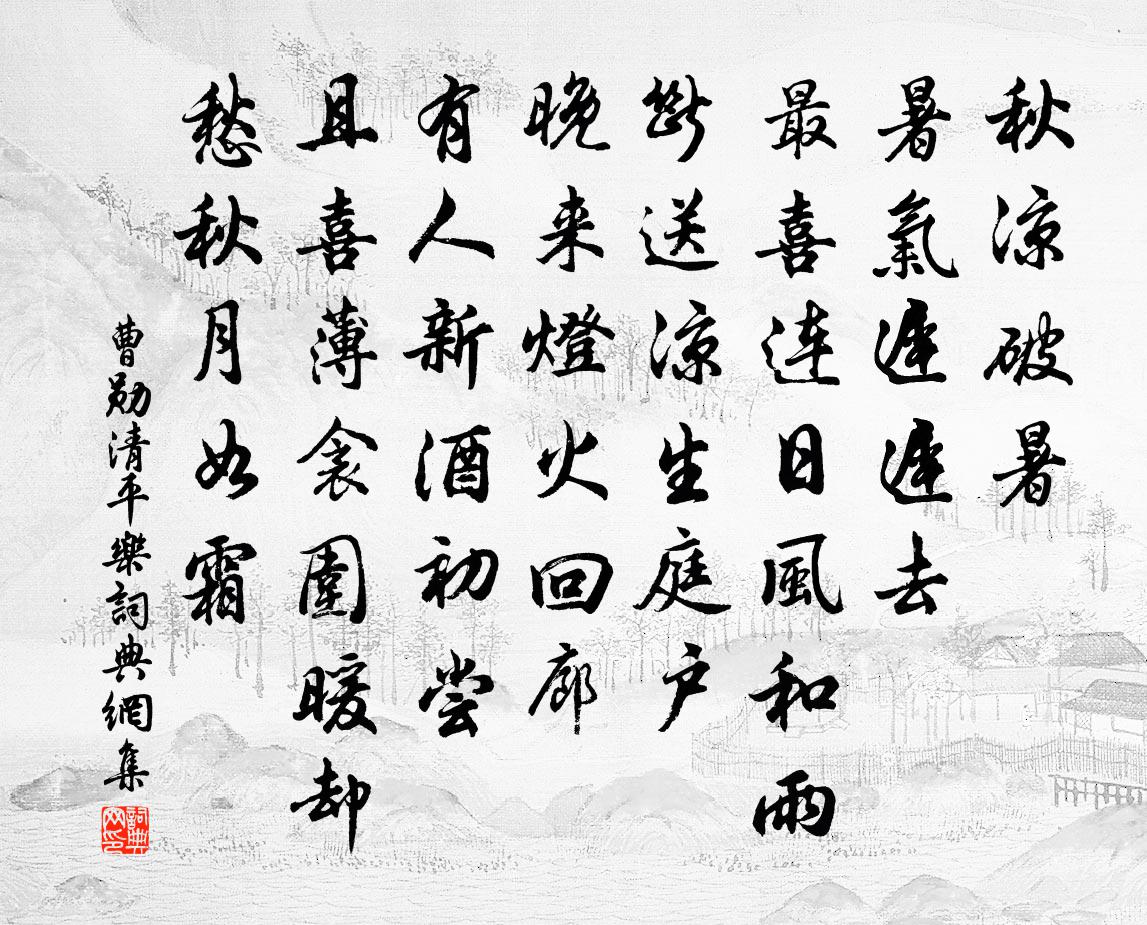 秋涼破暑
暑氣遲遲去
最喜連日風和雨
斷送涼生庭户
晚来燈火回廊
有人新酒初尝
且喜薄衾圍暖却
愁秋月如霜
曹勛清平樂詞典網集
詞典網印